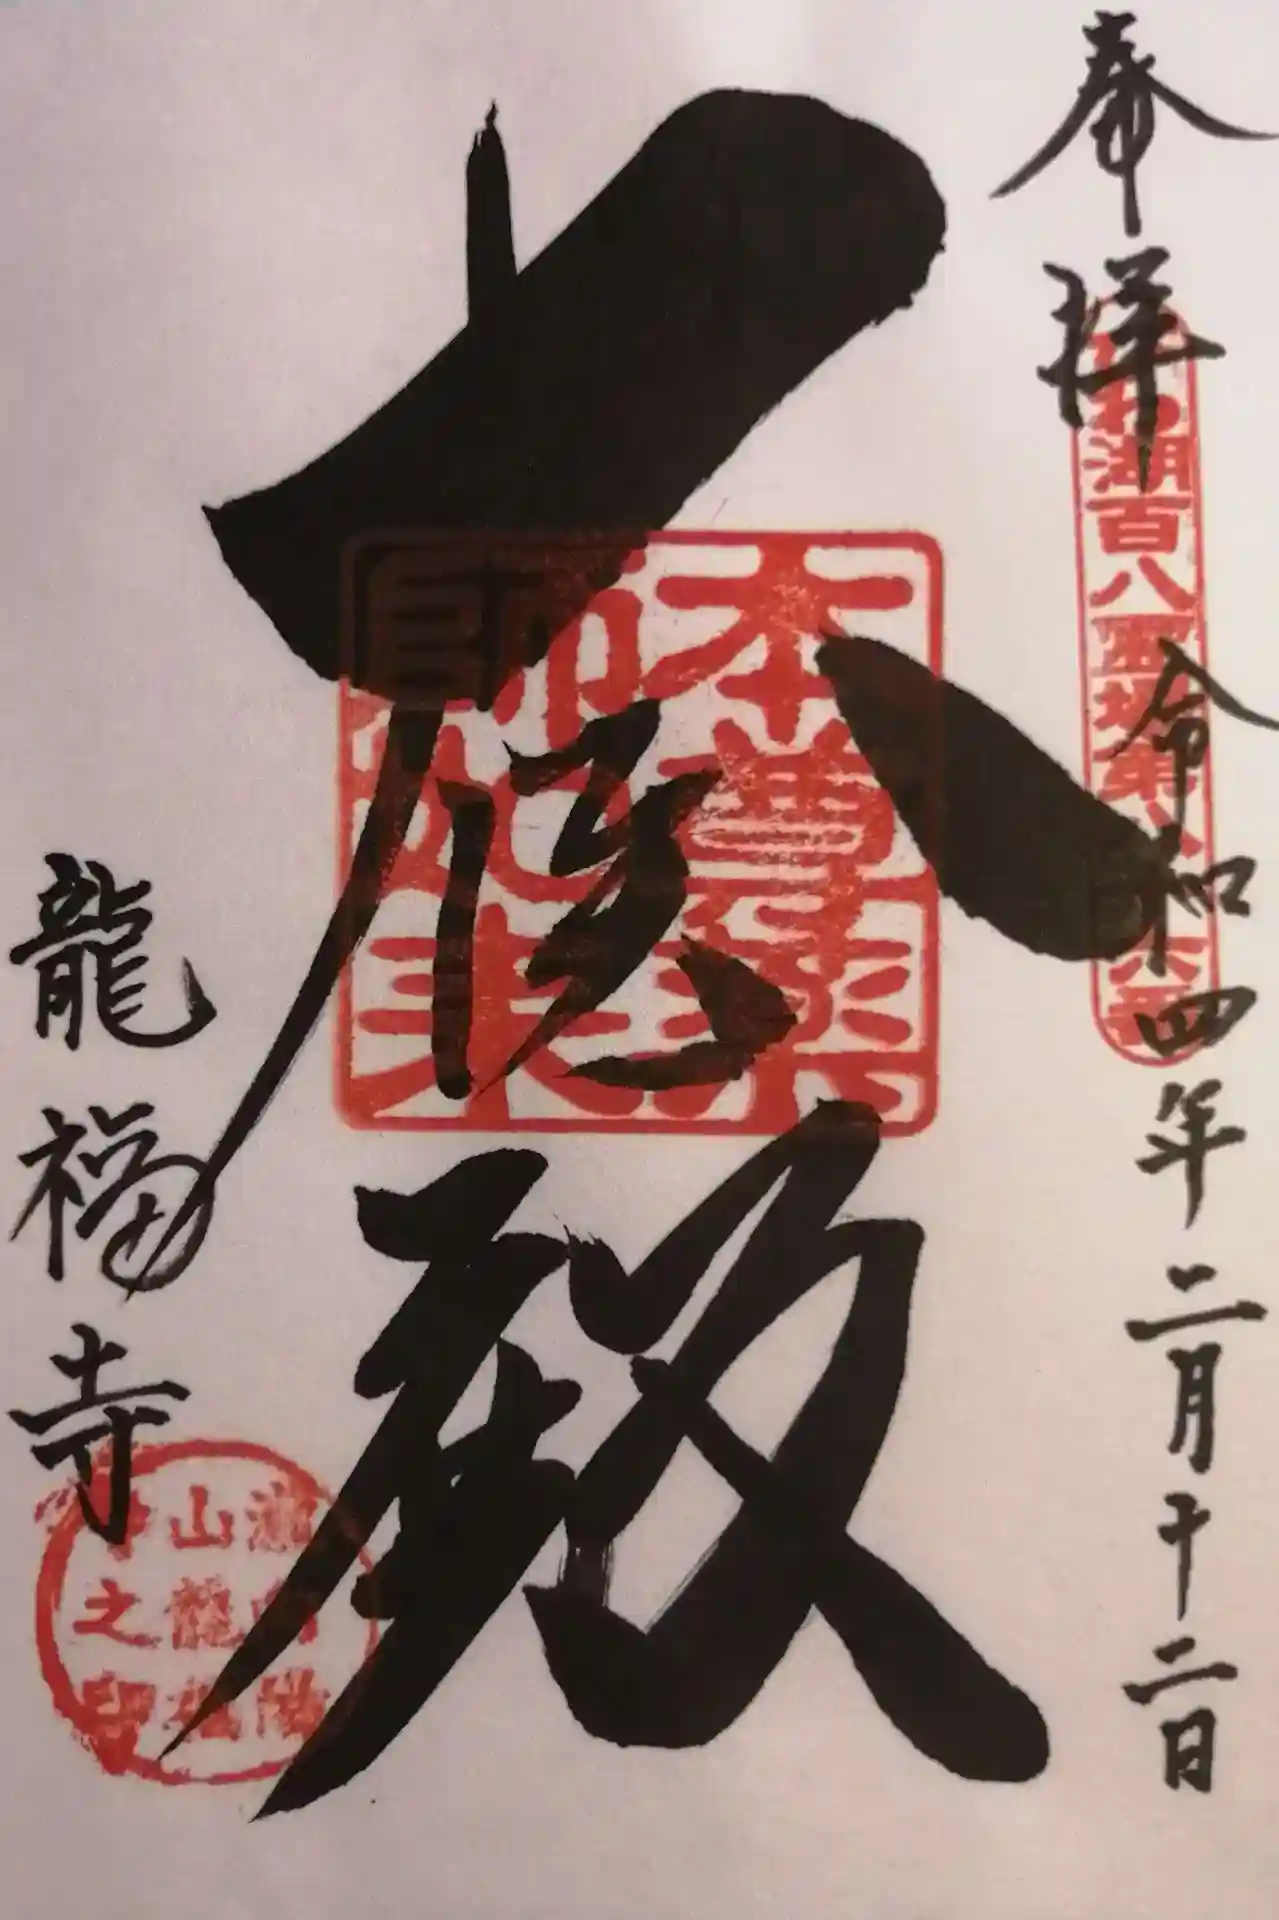 奉拝
わ湖百八霊場第八十六番
令和四年二月十二日
大医殿
本尊薬
師如来
龍福寺
向陽
山龍福
寺之印